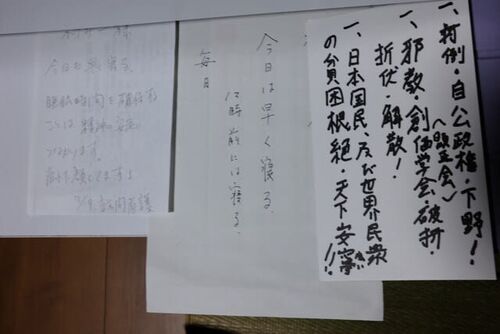 一、打倒・自公政権・下野!
〈顕正会〉
一、邪教・創価学会・破折・
折伏・解散!
一、日本国民、及び世界民衆
の貧困根絶・天下安寧!!
今日は早く寝る、
12時前には寝る、
毎日
今日も
睡眠時間を確保する
ことは精神安定
つながります。
訪問看護